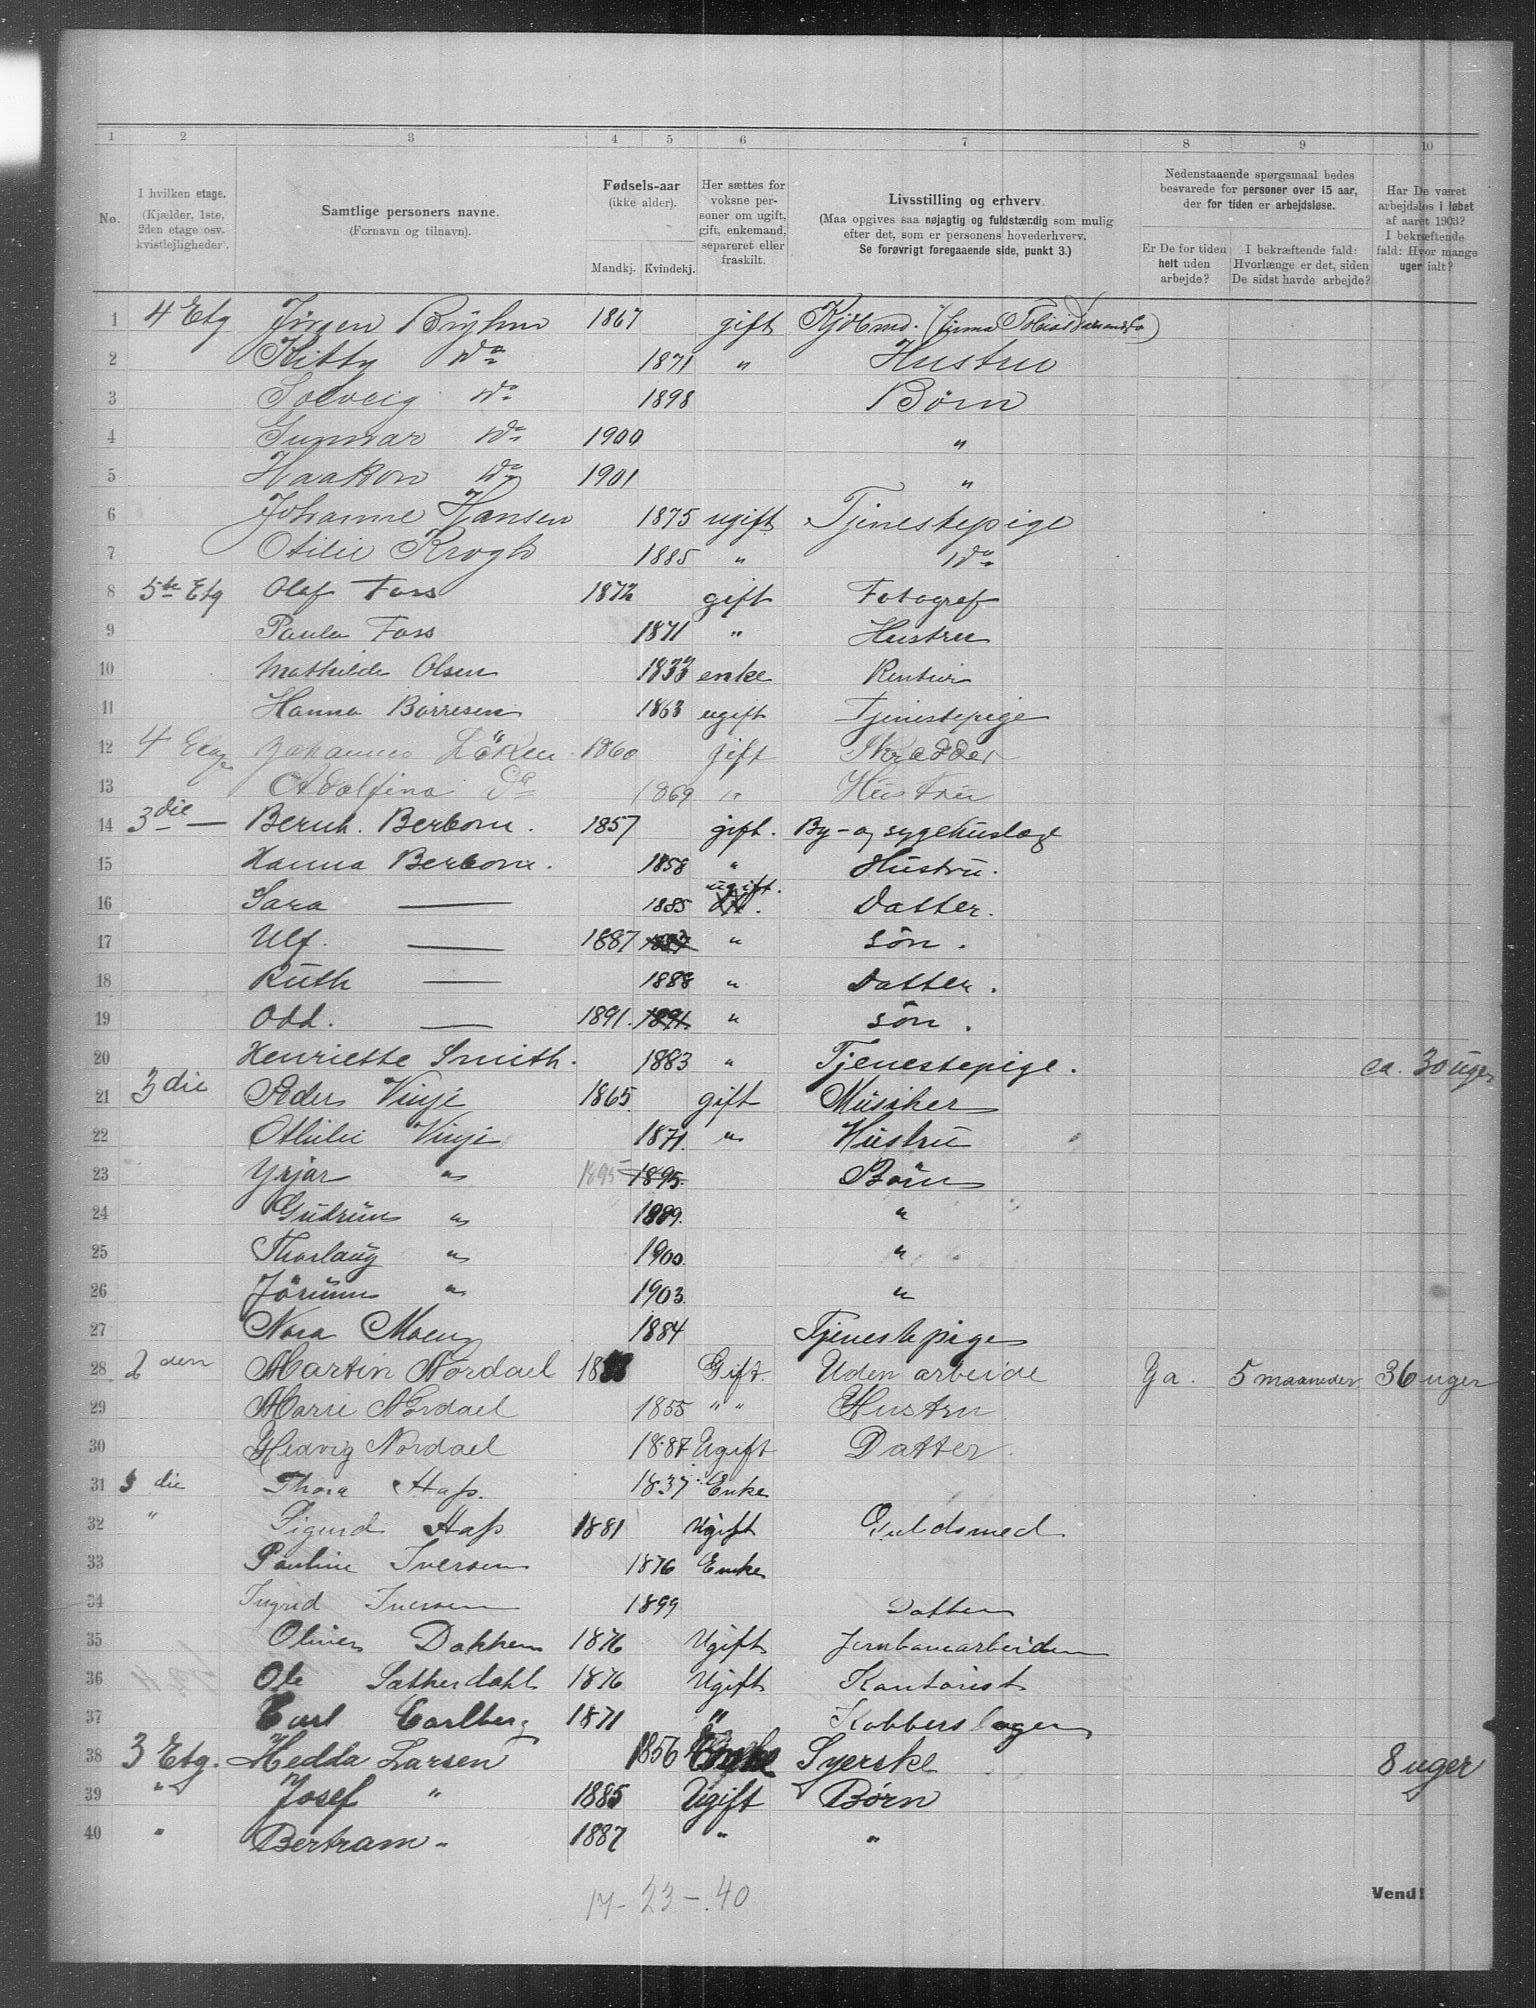 1 2 3 4 5 6 7 8 9 10
No.
I hvilken etage.
(Kjælder, 1ste,
2den etage osv.
kvistlejligheder).
Samtlige personers navne.
(Fornavn og tilnavn).
Fødsels-aar
(ikke alder).
Mandkj. Kvindekj.
Her sættes for
voksne per-
soner om ugift,
gift, enkemand,
separeret eller
fraskilt.
Livsstilling og erhverv.
(Maa opgives saa nøjagtig og fuldstændig som mulig
efter det, som er personens hovederhverv.
Se forøvrigt foregaaende side, punkt 3.)
Nedenstaaende spørgsmaal bedes
besvarede for personer over 15 aar,
der for tiden er arbejdsløse.
Er De for tiden
helt uden
arbejde?
I bekræftende fald:
Hvorlænge er det, siden
De sidst havde arbejde?
Har De været
arbejdsløs i løbet
af aaret 1903?
I bekræftende
fald: Hvor mange
uger ialt?
1 4 Etg Jörgen Brÿhn 1867 gift Kjöbmd. (firma Tobias
2 Kitty Do 1871 " Hustru
3 Solveig Do 1898 Børn
4 Gunnar Do 1900 "
5 Haakon Do 1901 "
6 Johanne Hansen 1875 ugift Tjenestepige
7 Otilie Krogh 1885 " Do
8 5te Etg Olaf Foss 1872 gift Fotograf
9 Paula Foss 1871 " Hustru
10 Mathilde Olsen 1833 enke Rentier
11 Hanna Börresen 1863 ugift Tjenestepige
12 4 Etage Johannes Löken 1860 gift Skrædder
13 Adolfina Do 1869 " Hustru
14 3die — Bernh. Berbom. 1857 gift. By- og sygehuslæge
15 Hanna Berbom. 1858 " Hustru.
16 Sara — 1885 ugift. Datter.
17 Ulf. — 1887 " Sön.
18 Ruth — 1888 " Datter.
19 Odd. — 1891. 1891. " Sön.
20 Henriette Smith. 1883 " Tjenestepige. ca. 30 uger
21 3die Peder Vinje 1865 gift Musiker
22 Othilie Vinje 1871. " Hustru
23 Yrjar " 1895 1895. Börn
24 Gudrun " 1899. "
25 Thorlaug " 1900. "
26 Jörunn " 1903. "
27 Nora Moen 1884 Tjenestepige
28 2den Martin Nordael Gift. Uden arbeide Ja. 5 maaneder 36 uger
29 Marie Nordael 1855 " " Hustru
30 Hedvig Nordael 1887 Ugift Datter.
31 3die Thora Hass. 1837 Enke
32 " Sigurd Hass 1881 Ugift Guldsmed
33 Pauline Iversen 1876 Enke
34 Ingrid Iversen 1899 Datter
35 Oliver Dokken 1876 Ugift Jernbanearbeider
36 Ole Sætherdahl 1876 Ugift Kontorist
37 Carl Carlberg 1871 " Kobberslager
38 3 Etg. Hedda Larsen 1856 Enke Syerske 8 uger
39 " Josef " 1885 Ugift Børn
40 " Bertram " 1887 " "
17 - 23 - 40
Vend!